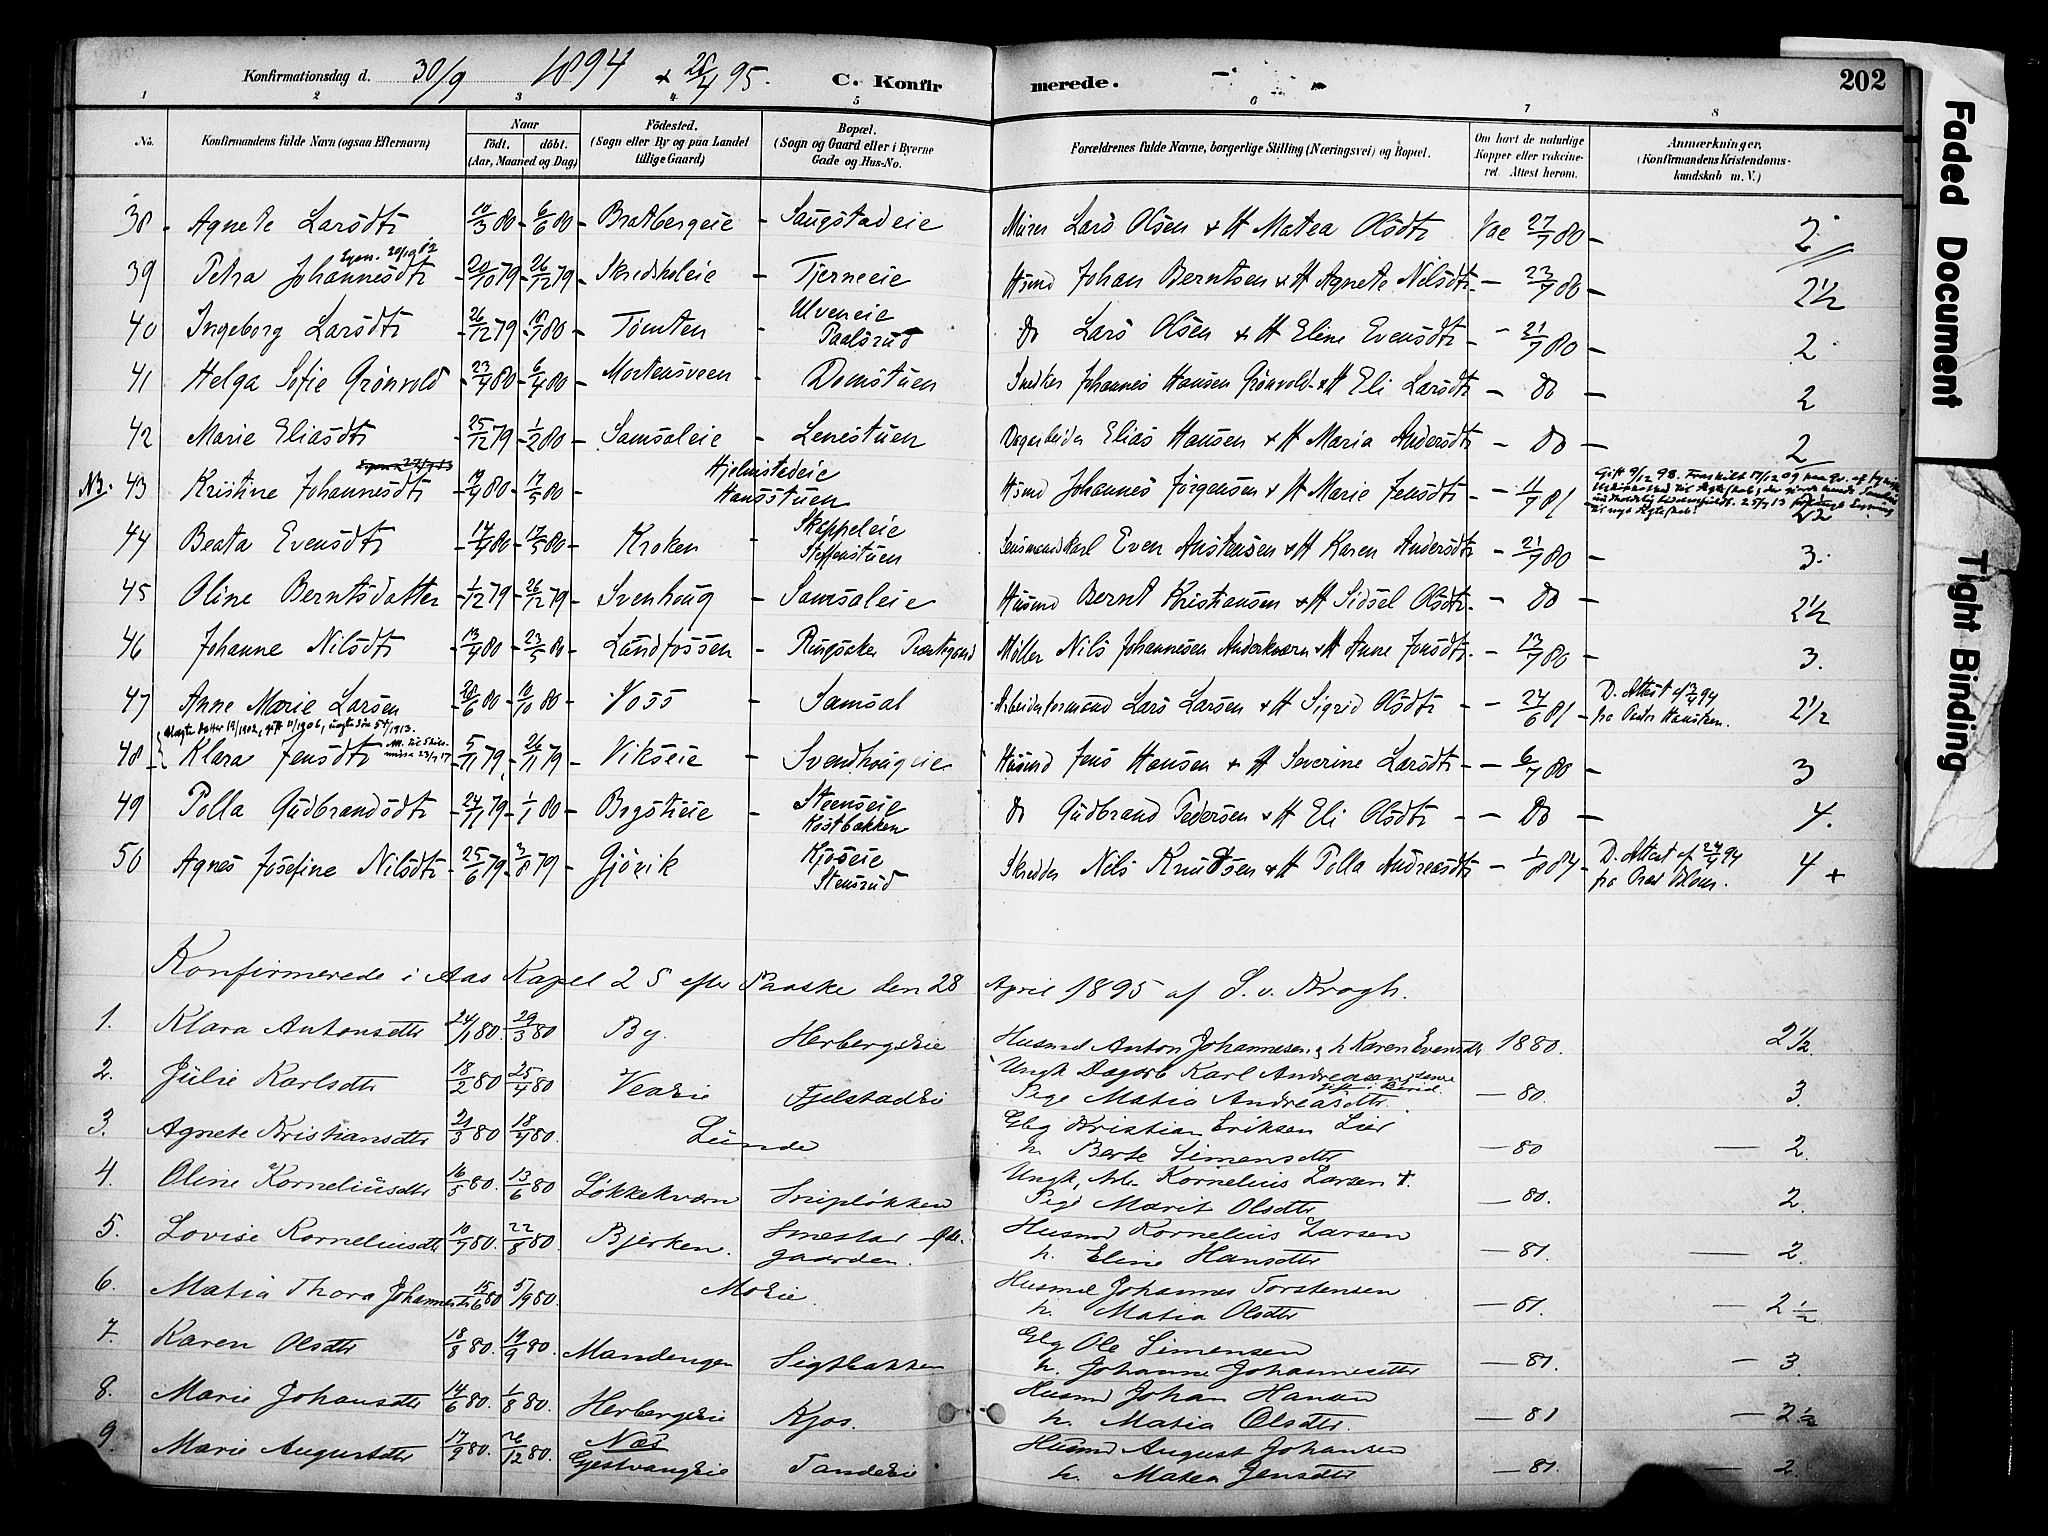 Konfirmationsdag d. 30/9 1894 + 28/4 95. C. Konfirmerede. 202
1 2 3 4 5 6 7 8
No. Konfirmandens fulde Navn (ogsaa Efternavn) Naar født. døbt. (Aar, Maaned og Dag) Fødested. (Sogn eller By og paa Landet tillige Gaard) Bopæl. (Sogn og Gaard eller i Byerne Gade og Hus-No. Forældrenes fulde Navne, borgerlige Stilling (Næringsvei) og Bopæl. Om havt de naturlige Kopper eller vaccineret. Attest herom. Anmærkninger. (Konfirmandens Kristendomskundskab m. V.)
38 Agnete Larsdtr 10/3 80 6/6 80 Bratbergeie Saugstadeie Murer Lars Olsen + H Matea Olsdtr Vac 27/7 80 2
39 Petra Johannesdtr 20/10 79 26/12 79 Skredsholeie Tjerneeie Husmd Johan Berntsen + H Agnete Nilsdtr 23/7 80 2½
40 Ingeborg Larsdtr 26/12 79 80 Tomten Ulveneie Paalsrud Do Lars Olsen + H Eline Evensdtr 21/7 80 2
41 Helga Sofie Grönvold 23/1 80 6/4 80 Mortensveen Domstuen Snedker Johannes Hansen Grönvold + H Eli Larsdtr Do 2
42 Marie Eliasdtr 25/12 79 1/2 80 Samsaleie Lenestuen Dagarbeider Elias Hansen + H Maria Andersdtr Do 2
NB. 43 Kristine Johannesdtr 80 17/5 80 Hjelmstadeie Hansstuen Husmd Johannes Jörgensen + H Marie Jensdtr 11/7 81 Gift 9/12 98. Fraskilt 17/12 09
44 Beata Evensdtr 14/4 80 17/5 80 Kroken Skappeleie Steffenstuen Even Austensen + H Karen Andersdtr 21/7 80 3.
45 Oline Berntsdatter 1/12 79 26/12 79 Svenhoug Samsaleie Husmd Bernt Kristiansen + H Sidsel Olsdtr Do 2½
46 Johanne Nilsdtr 13/4 80 23/5 80 Lundfossen Ringsaker Præstegaard Möller Nils Johannesen Anderkværn + H Anne Jensdtr 13/7 80 3.
47 Anne Marie Larsen 28/6 80 10/10 80 Voss Samsal Arbeidsformand Lars Larsen + H Sigrid Olsdtr 24/6 81 D. Attest af 94 fra Pastor Hansteen. 2½
48 Klara Jensdtr 5/11 79 26/11 79 Vikseie Svendhougeie Husmd Jens Hansen + H Severine Larsdtr 6/7 80 3
49 Polla Gudbrandsdtr 24/11 79 1/1 80 Bogstieie Steenseie Kostbakken Do Gudbrand Pedersen + H Eli Olsdtr Do 4.
50 Agnes Josefine Nilsdtr 25/6 79 3/8 79 Gjövik Kjoseie Stensrud Skrædder Nils Knudsen + H Polla Andreasdtr 84 D. Attest af 24/4 94 fra Præst Blom. 4 +
Konfirmerede i Aas Kapel 2 S efter Paaske den 28 April 1895 af S. v. Krogh.
1. Klara Antonsdtr 24/1 80 29/3 80 By. Herbergseie Husmd Anton Johannesen, h Karen Evensdtr 1880. 2½
2. Julie Karlsdtr 18/2 80 25/4 80 Veaeie Fjelstadeie Ungk Dagarb Karl Andreasen Pige Matea Andreasdtr. 80. 3.
3. Agnete Kristiansdtr 21/3 80 18/4 80 Lunde Gbg Kristian Eriksen Lier h. Berte Simensdtr 80 2.
4. Oline Korneliusdtr 16/5 80. 13/6 80 Løkkekværn Snipløkken Ungk. Arb. Kornelius Larsen + Pige Marit Olsdtr 80. 2.
5. Lovise Korneliusdtr 10/7 80. 22/8 80 Bjerken. Smestad gaarden. Husmd Kornelius Larsen h. Eline Hansdtr 81. 2.
6. Matia Thora Johannesdtr 15/6 80 5/9 80. Moeie. Husmd Johannes Torstensen h. Matia Olsdtr 81. 2½
7. Karen Olsdtr 18/8 80. 19/9 80. Mandengen Sigtbakken Gbg Ole Simensen h. Johanne Johannesdtr 81. 3.
8. Marie Johansdtr 14/6 80. 1/8 80. Herbergseie Kjos. Husmd Johan Hansen h. Matia Olsdtr 81 2½
9. Marie Augustdtr 17/9 80. 26/12 80. Næs Gjestvangeie Tandeeie Husmd August Johansen h. Matea Jensdtr 81. 2.
Faded Document
Tight Binding